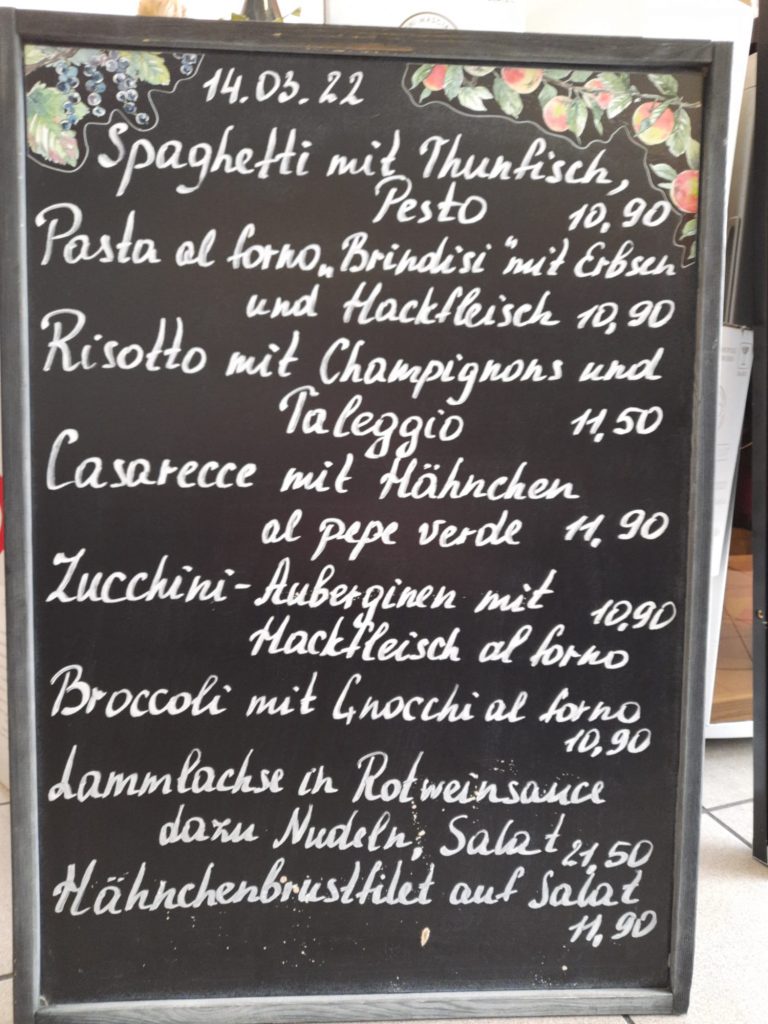 14.03.22
Spaghetti mit Thunfisch,
Pesto 10,90
Pasta al forno „Brindisi" mit Erbsen
und Hackfleisch 10,90
Risotto mit Champignons und
Taleggio 11,50
Casarecce mit Hähnchen
al pepe verde 11,90
Zucchini-Auberginen mit
10,90
Hackfleisch al forno
Broccoli mit Gnocchi al forno
10,90
Lammlachse in Rotweinsauce
dazu Nudeln, Salat 21,50
Hähnchenbrustfilet auf Salat
11,90